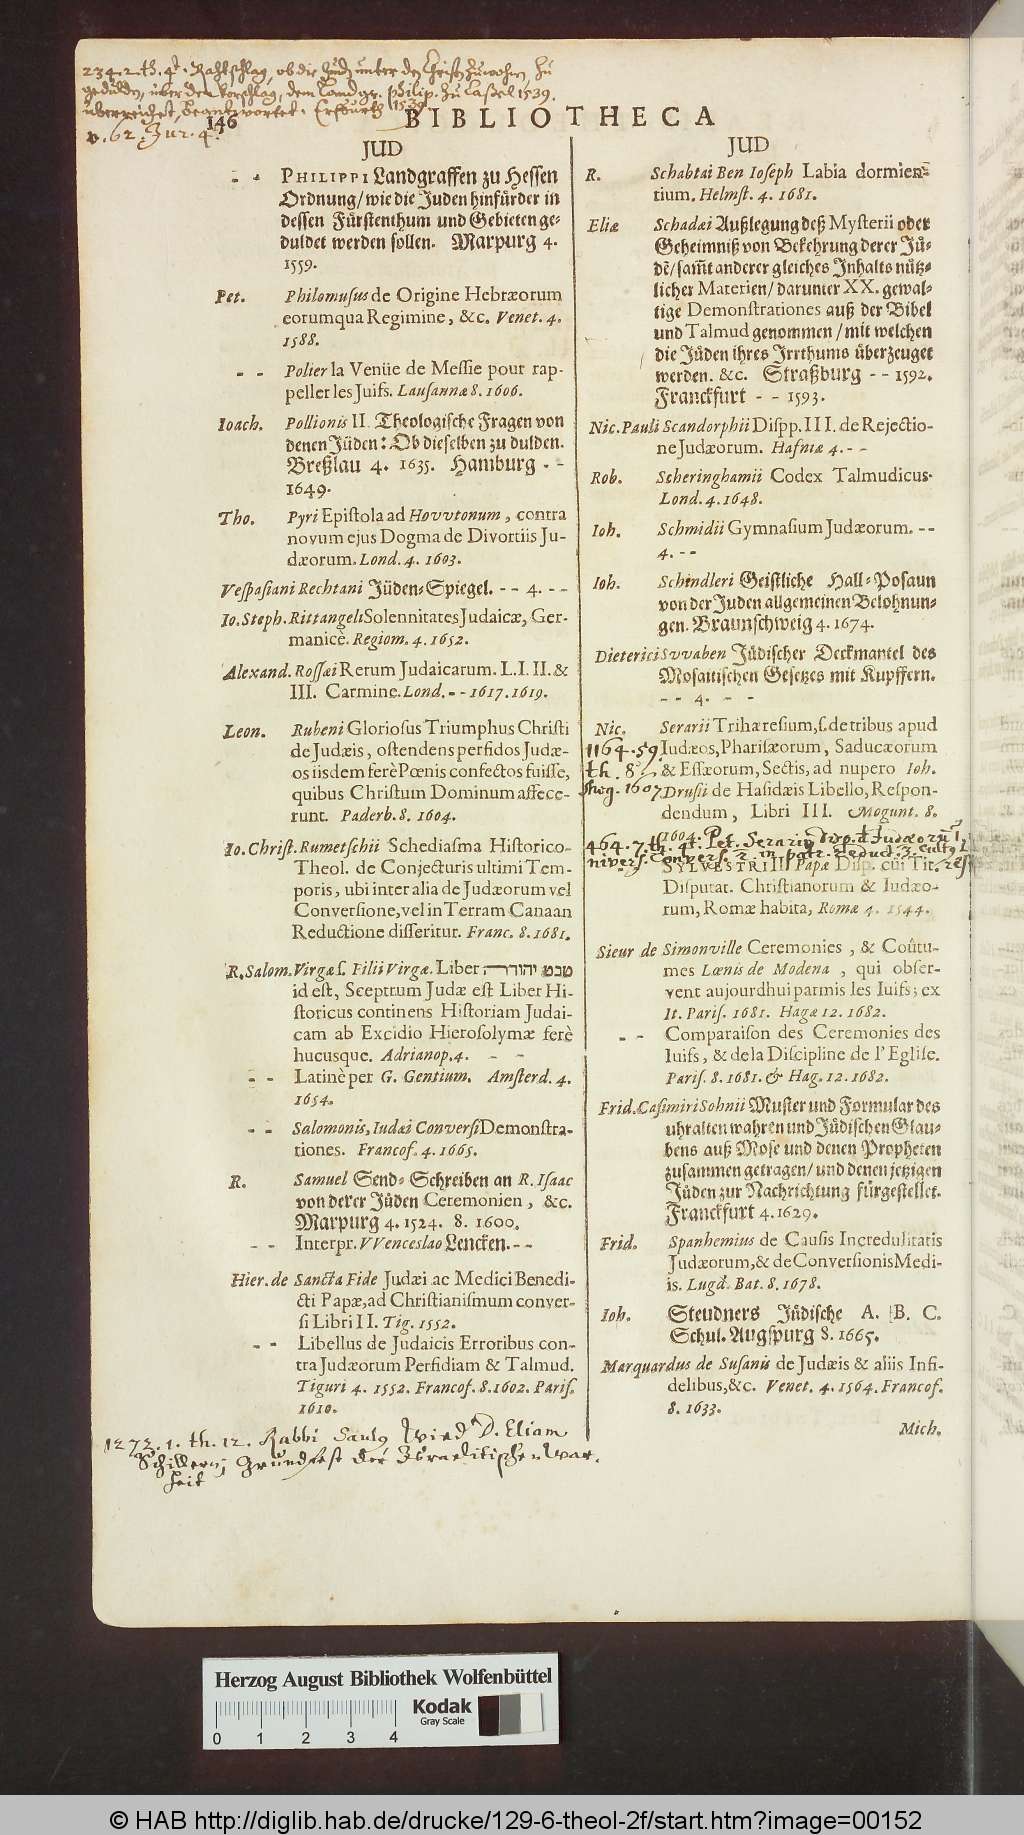 234.2.th.4t. Rahtschlag, ob die Juden unter den Christen zu wohnen, zu
gedulden, über den Vorschlag, dem Landgr. Philip. zu Caßel 1539.
überreichet, beantwortet. Erfburth 1539
v. 62. Jur. 4t.
146 BIBLIOTHECA
JUD
- - PHILIPPI Landgraffen zu Hessen
Ordnung/ wie die Juden hinfürder in
dessen Fürstenthum und Gebieten ge-
duldet werden sollen. Marpurg 4.
1559.
Pet. Philomusus de Origine Hebræorum
eorumqua Regimine, &c. Venet. 4.
1588.
- - Polier la Venüe de Messie pour rap-
peller les Juifs. Lausannæ 8. 1606.
Ioach. Pollionis II. Theologische Fragen von
denen Jüden: Ob dieselben zu dulden.
Breßlau 4. 1635. Hamburg - -
1649.
Tho. Pyri Epistola ad Hovvtonum, contra
novum ejus Dogma de Divortiis Ju-
dæorum. Lond. 4. 1603.
Vespasiani Rechtani Jüden-Spiegel. - - 4. - -
Io. Steph. Rittangeli Solennitates Judaicæ, Ger-
manicè. Regiom. 4. 1652.
Alexand. Rossæi Rerum Judaicarum. L. I. II. &
III. Carmine. Lond. - - 1617. 1619.
Leon. Rubeni Gloriosus Triumphus Christi
de Judæis, ostendens perfidos Judæ-
os iisdem ferè Pœnis confectos fuisse,
quibus Christum Dominum affece-
runt. Paderb. 8. 1604.
Io. Christ. Rumetschii Schediasma Historico-
Theol. de Conjecturis ultimi Tem-
poris, ubi inter alia de Judæorum vel
Conversione, vel in Terram Canaan
Reductione disseritur. Franc. 8. 1681.
R. Salom. Virgæ s. Filii Virgæ. Liber שבט יהודה
id est, Sceptrum Judæ est Liber Hi-
storicus continens Historiam Judai-
cam ab Excidio Hierosolymæ ferè
hucusque. Adrianop. 4. - -
- - Latinè per G. Gentium. Amsterd. 4.
1654.
- - Salomonis, Iudæi Conversi Demonstra-
tiones. Francof. 4. 1665.
R. Samuel Send-Schreiben an R. Isaac
von derer Jüden Ceremonien, &c.
Marpurg 4. 1524. 8. 1600.
- - Interpr. VVenceslao Lencken. - -
Hier. de Sancta Fide Judæi ac Medici Benedi-
cti Papæ, ad Christianismum conver-
si Libri II. Tig. 1552.
- - Libellus de Judaicis Erroribus con-
tra Judæorum Perfidiam & Talmud.
Tiguri 4. 1552. Francof. 8. 1602. Paris.
1610.
1272.1. th. 12. Rabbi Sauls Wird D. Eliam
Schillern; Grundfest der Israelitischen War-
heit
JUD
R. Schabtai Ben Ioseph Labia dormien-
tium. Helmst. 4. 1681.
Eliæ Schadæi Außlegung deß Mysterii oder
Geheimniß von Bekehrung derer Jü-
dē/ sam̄t anderer gleiches Inhalts nütz-
licher Materien/ darunter XX. gewal-
tige Demonstrationes auß der Bibel
und Talmud genommen/ mit welchen
die Jüden ihres Irrthums überzeuget
werden. &c. Straßburg - - 1592.
Franckfurt - - 1593.
Nic. Pauli Scandorphii Dispp. III. de Rejectio-
ne Judæorum. Hafniæ 4. - -
Rob. Scheringhamii Codex Talmudicus.
Lond. 4. 1648.
Ioh. Schmidii Gymnasium Judæorum. - -
4. - -
Ioh. Schindleri Geistliche Hall-Posaun
von der Juden allgemeinen Belohnun-
gen. Braunschweig 4. 1674.
Dieterici Svvaben Jüdischer Deckmantel des
Mosaitischen Gesetzes mit Kupffern.
- - 4. - -
Nic. Serarii Trihæresium, s. de tribus apud
Iudæos, Pharisæorum, Saducæorum
& Essæorum, Sectis, ad nupero Ioh.
Drusii de Hasidæis Libello, Respon-
dendum, Libri III. Mogunt. 8.
1604.
1164.59.
th. 8
1607
464.7.th. 4t. Pet. Serarii
SYLVESTRI II. Papæ Disp. cui Tit.
Disputat. Christianorum & Iudæo-
rum, Romæ habita, Romæ 4. 1544.
Sieur de Simonville Ceremonies, & Coûtu-
mes Lœnis de Modena, qui obser-
vent aujourdhui parmis les Iuifs; ex
It. Paris. 1681. Hagæ 12. 1682.
- - Comparaison des Ceremonies des
Iuifs, & de la Discipline de l'Eglise.
Paris. 8. 1681. & Hag. 12. 1682.
Frid. Casimiri Sohnii Muster und Formular des
uhralten wahren und Jüdischen Glau-
bens auß Mose und denen Propheten
zusammen getragen/ und denen jetzigen
Jüden zur Nachrichtung fürgestellet.
Franckfurt 4. 1629.
Frid. Spanhemius de Causis Incredulitatis
Judæorum, & de Conversionis Medi-
is. Lugd. Bat. 8. 1678.
Ioh. Steudners Jüdische A. B. C.
Schul. Augspurg 8. 1665.
Marquardus de Susanis de Judæis & aliis Infi-
delibus, &c. Venet. 4. 1564. Francof.
8. 1633.
Mich.
Herzog August Bibliothek Wolfenbüttel
0 1 2 3 4
Kodak
Gray Scale
© HAB http://diglib.hab.de/drucke/129-6-theol-2f/start.htm?image=00152